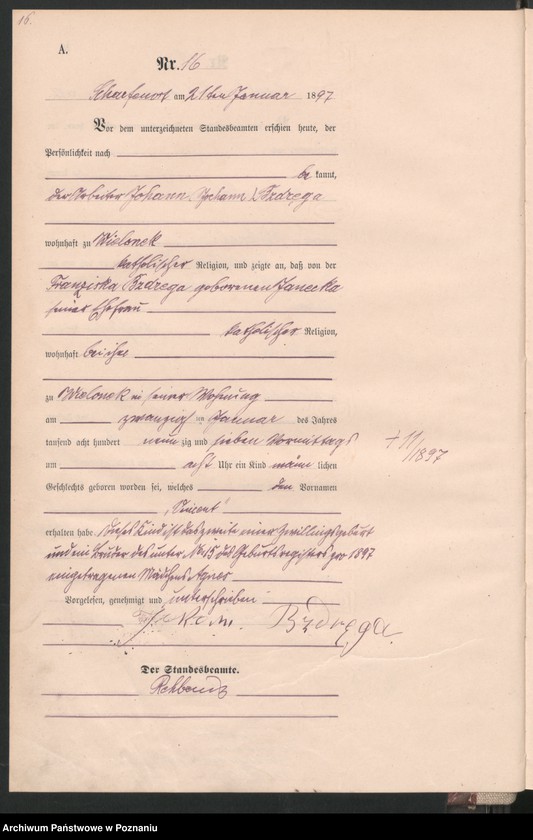 16.
A.
Nr. 16
Scharfenort am 21ten Januar 1897
Vor dem unterzeichneten Standesbeamten erschien heute, der
Persönlichkeit nach
be kannt,
der Arbeiter Johann Bzdrega
wohnhaft zu Wielonek
katholischer Religion, und zeigte an, daß von der
Franziska Bzdrega geborenen Janecka
seiner Ehefrau
katholischer Religion,
wohnhaft bei ihm
zu Wielonek in seiner Wohnung
am zwanzigsten Januar des Jahres
tausend acht hundert neun zig und sieben Vormittags
um acht Uhr ein Kind männ lichen
Geschlechts geboren worden sei, welches den Vornamen
"Vincent"
erhalten habe. Dieses Kind ist das zweite einer Zwillingsgeburt
und ein Bruder des unter No 15 des Geburtsregisters pro 1897
eingetragenen Mädchens Agnes
Vorgelesen, genehmigt und unterschrieben
Bzdręga
Der Standesbeamte.
/1897
Archiwum Państwowe w Poznaniu